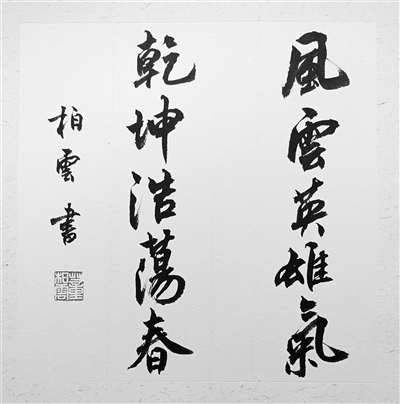 風雲英雄氣
乾坤浩蕩春
柏雲書